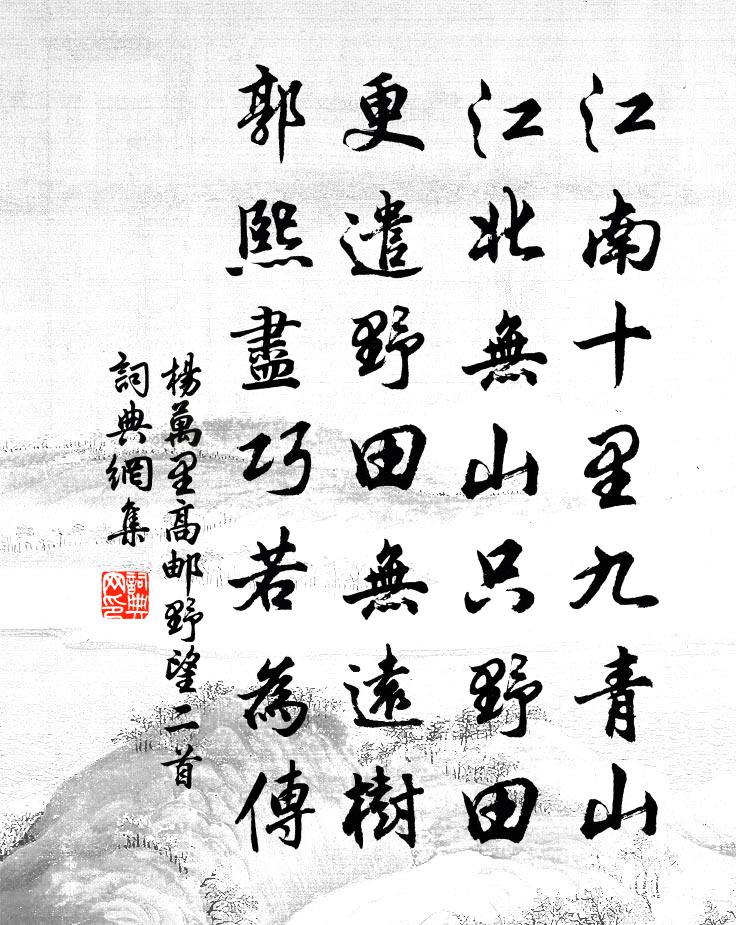 江南十里九青山
江北無山只野田
更遣野田無遠樹
郭熙盡巧若為傳
楊萬里高邮野望二首
詞典網集
詞典网印